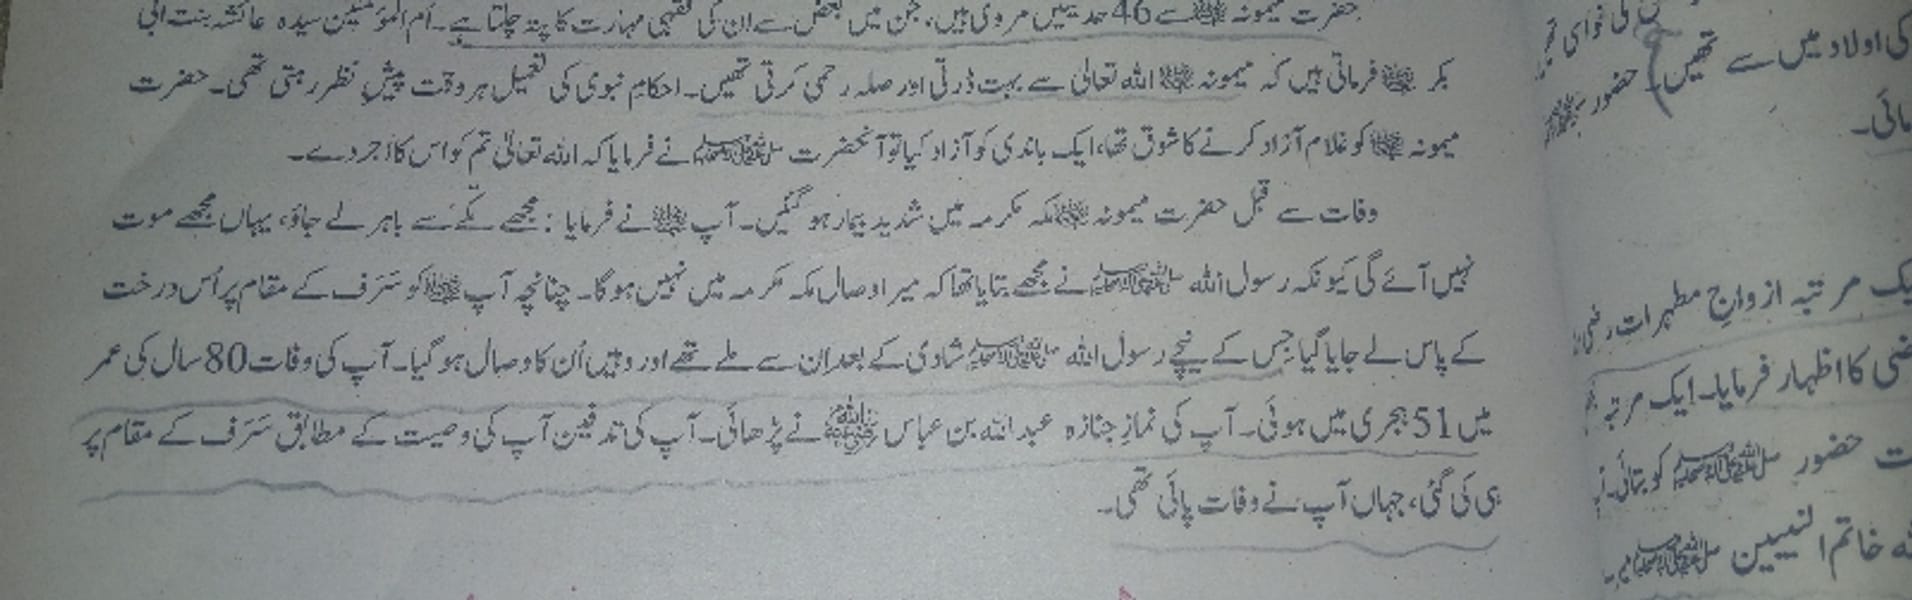 حضرت میمونہ رضی اللہ عنہا سے 46 حدیثیں مروی ہیں، جن میں بعض سے ان کی فقہی مہارت کا پتہ چلتا ہے۔ اُم المؤمنین سیدہ عائشہ بنت ابی
بکر رضی اللہ عنہا فرماتی ہیں کہ میمونہ رضی اللہ عنہا اللہ تعالیٰ سے بہت ڈرتی اور صلہ رحمی کرتی تھیں۔ احکامِ نبوی کی تعمیل ہر وقت پیشِ نظر رہتی تھی۔ حضرت
میمونہ رضی اللہ عنہا کو غلام آزاد کرنے کا شوق تھا، ایک باندی کو آزاد کیا تو آنحضرت ﷺ نے فرمایا کہ اللہ تعالیٰ تم کو اس کا اجر دے۔
وفات سے قبل حضرت میمونہ رضی اللہ عنہا مکہ مکرمہ میں شدید بیمار ہو گئیں۔ آپ رضی اللہ عنہا نے فرمایا: مجھے مکّے سے باہر لے جاؤ، یہاں مجھے موت
نہیں آئے گی کیونکہ رسول اللہ ﷺ نے مجھے بتایا تھا کہ میرا وصال مکہ مکرمہ میں نہیں ہوگا۔ چنانچہ آپ رضی اللہ عنہا کو سَرَف کے مقام پر اُس درخت
کے پاس لے جایا گیا جس کے نیچے رسول اللہ ﷺ شادی کے بعد ان سے ملے تھے اور وہیں اُن کا وصال ہو گیا۔ آپ کی وفات 80 سال کی عمر
میں 51 ہجری میں ہوئی۔ آپ کی نمازِ جنازہ عبداللہ بن عباس رضی اللہ عنہ نے پڑھائی۔ آپ کی تدفین آپ کی وصیت کے مطابق سَرَف کے مقام پر
ہی کی گئی، جہاں آپ نے وفات پائی تھی۔
کی نواسی
کی اولاد میں سے تھیں۔ حضور
مائی۔
یک مرتبہ ازواجِ مطہرات
ضی کا اظہار فرمایا۔ ایک مرتبہ
ت حضور ﷺ کو بتائی۔
خاتم النبیین ﷺ